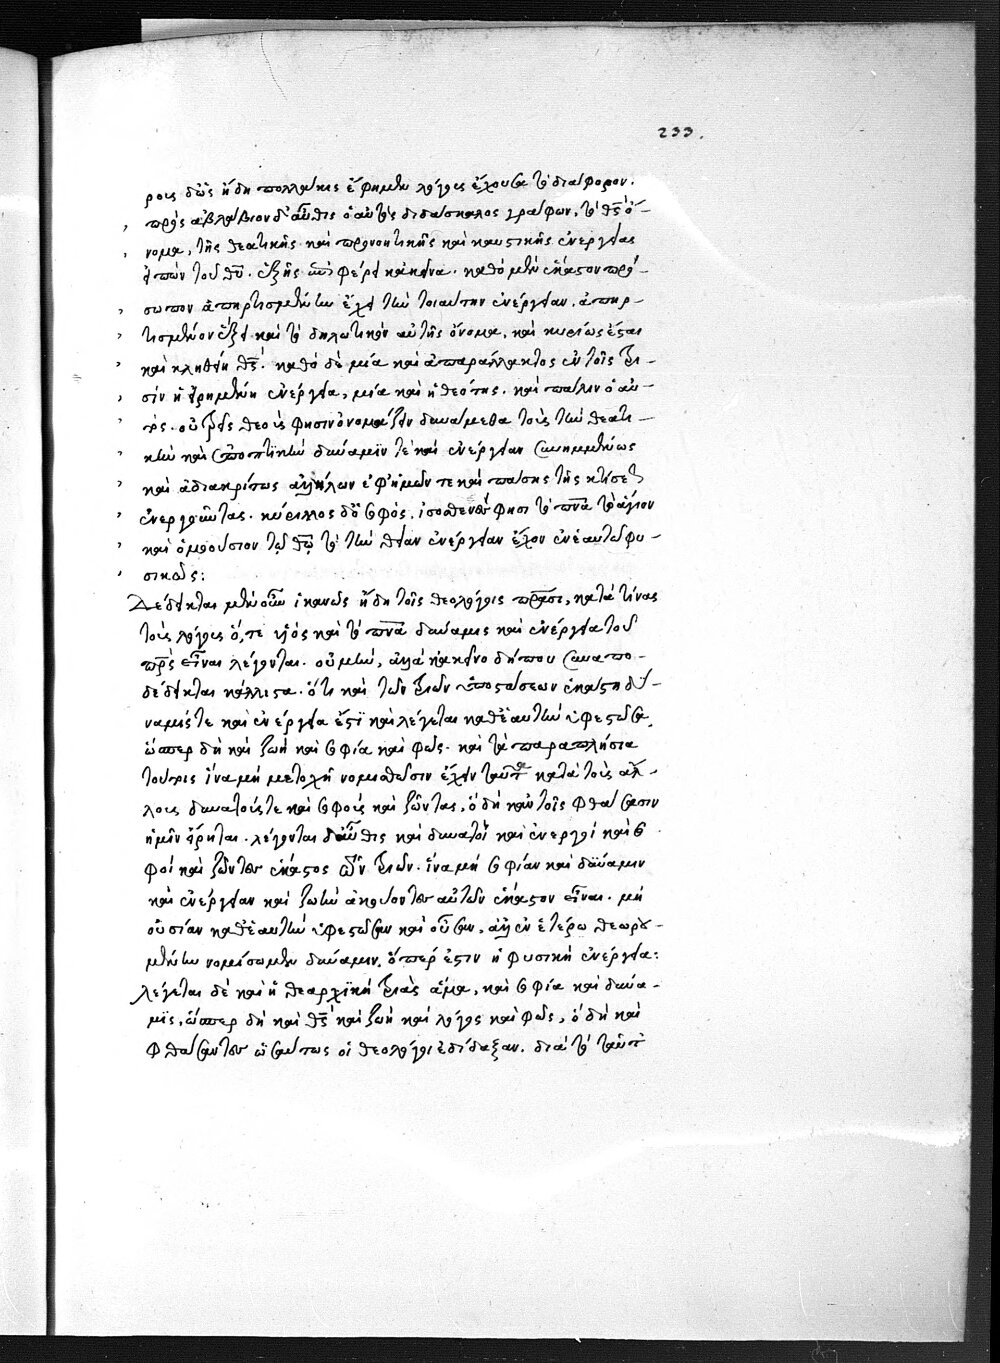 233.
ροις δ' ὡς ἤδη πολλάκις ἔφημεν λόγοις ἔχουσι τὸ διάφορον.
πρὸς ἀβλάβιον δ' αὖθις ὁ αὐτὸς διδάσκαλος γράφων, τὸ θς ὄ-
νομα, τῆς θεατικῆς καὶ προνοητικῆς καὶ καυστικῆς ἐνεργείας
εἰπὼν τοῦ θυ. ἑξῆς ἐπιφέρει κἀκεῖνα. καθὸ μὲν ἕκαστον πρό-
σωπον ἀπηρτισμένην ἔχει τὴν τοιαύτην ἐνέργειαν, ἀπηρ-
τισμένον ἕξει καὶ τὸ δηλωτικὸν αὐτῆς ὄνομα, καὶ κυρίως ἔσται
καὶ κληθείη θς. καθὸ δὲ μία καὶ ἀπαράλλακτος ἐν τοῖς τρι-
σὶν ἡ εἰρημένη ἐνέργεια, μία καὶ ἡ θεότης. καὶ πάλιν ὁ αὐ-
τός. οὐ τρεῖς θεοὺς φησὶν ὀνομάζειν δυνάμεθα τοὺς τὴν θεατι-
κὴν καὶ ἐποπτικὴν δύναμίν τε καὶ ἐνέργειαν συνημμένως
καὶ ἀδιακρίτως ἀλλήλων ἐφ' ἡμῶν τε καὶ πάσης τῆς κτίσεως
ἐνεργοῦντας. κύριλλος δ' ὁ σοφός, ἰσοσθενές φησι τὸ πνα τὸ ἅγιον
καὶ ὁμοούσιον τῷ θῷ τὸ τὴν θείαν ἐνέργειαν ἔχον ἐν ἑαυτῷ φυ-
σικῶς:
Δέδεικται μὲν οὖν ἱκανῶς ἤδη τοῖς θεολόγοις πᾶσι, κατὰ τίνας
τοὺς λόγους ὅ, τε υἱὸς καὶ τὸ πνα δύναμις καὶ ἐνέργεια τοῦ
πρς εἶναι λέγονται. οὐ μὴν, ἀλλὰ κἀκεῖνο δήπου συναπο-
δέδεικται κάλλιστα. ὅτι καὶ τῶν τριῶν ὑποστάσεων ἑκάστη δύ-
ναμίς τε καὶ ἐνέργεια ἔστι καὶ λέγεται καθ' ἑαυτὴν ὑφεστῶσα,
ὥσπερ δὴ καὶ ζωὴ καὶ σοφία καὶ φῶς. καὶ τὰ παραπλήσια
τούτοις ἵνα μὴ μετοχῇ νομισθῶσιν ἔχειν ταῦτα κατὰ τοὺς ἄλ-
λους δυνατούς τε καὶ σοφοὺς καὶ ζῶντας, ὃ δὴ κἀν τοῖς φθάσασιν
ἡμῖν εἴρηται. λέγονται δ' αὖθις καὶ δυνατοὶ καὶ ἐνεργοὶ καὶ σο-
φοὶ καὶ ζῶντες ἕκαστος τῶν τριῶν. ἵνα μὴ σοφίαν καὶ δύναμιν
καὶ ἐνέργειαν καὶ ζωὴν ἀκούοντες αὐτῶν ἕκαστον εἶναι. μὴ
οὐσίαν καθ' ἑαυτὴν ὑφεστῶσαν καὶ οὖσαν, ἀλλ' ἐν ἑτέρῳ θεωρου-
μένην νομίσωμεν δύναμιν, ὅπερ ἐστὶν ἡ φυσικὴ ἐνέργεια:
λέγεται δὲ καὶ ἡ θεαρχικὴ τριὰς ἅμα, καὶ σοφία καὶ δύνα-
μις, ὥσπερ δὴ καὶ θς καὶ ζωὴ καὶ λόγος καὶ φῶς, ὃ δὴ καὶ
φθάσαντες ὡσαύτως οἱ θεολόγοι ἐδίδαξαν. διὰ τὸ ταῦτα